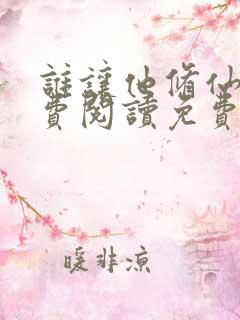 誰讓他脩仙
費閱讀免費
暖非涼